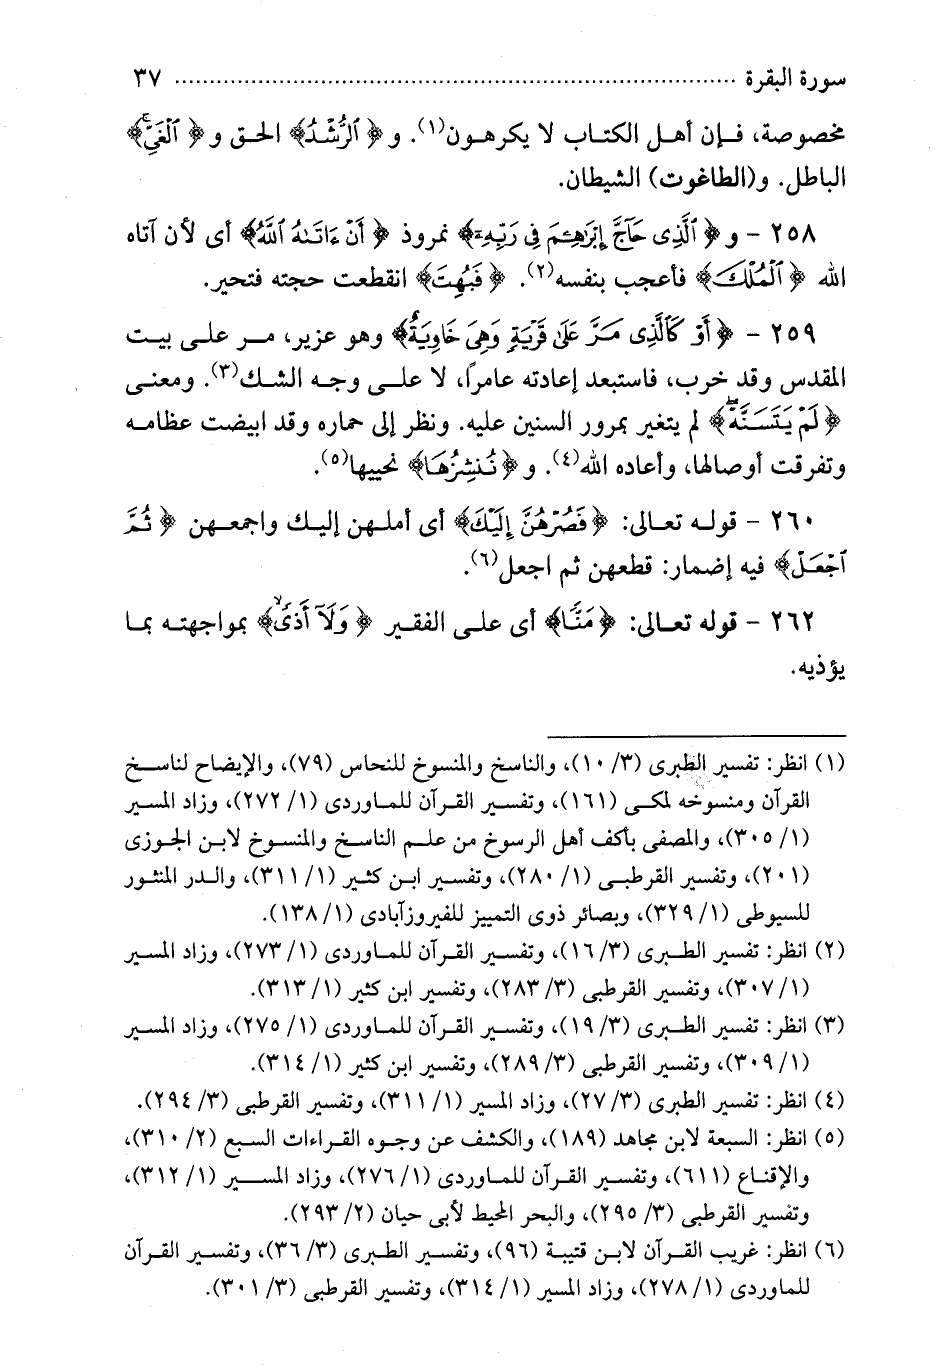 سورة البقرة ........................................................................ ٣٧
مخصوصة، فـإن أهـل الكتـاب لا يكرهـون(١). و﴿ ٱلرُّشْدُ﴾ الحـق و﴿ ٱلْغَيِّ﴾
الباطل. و(الطاغوت) الشيطان.
٢٥٨ - و﴿ ٱلَّذِى حَآجَّ إِبْرَٰهِـۧمَ فِى رَبِّهِۦٓ﴾ نمروذ ﴿ أَنْ ءَاتَىٰهُ ٱللَّهُ﴾ أى لأن آتاه
الله ﴿ ٱلْمُلْكَ﴾ فأعجب بنفسه(٢). ﴿ فَبُهِتَ﴾ انقطعت حجته فتحير.
٢٥٩ - ﴿ أَوْ كَٱلَّذِى مَرَّ عَلَىٰ قَرْيَةٍ وَهِىَ خَاوِيَةٌ﴾ وهو عزير، مـر علـى بيـت
المقدس وقد خرب، فاستبعد إعادته عامراً، لا علـى وجـه الشـك(٣). ومعنـى
﴿ لَمْ يَتَسَنَّهْ﴾ لم يتغير بمرور السنين عليه. ونظر إلى حماره وقد ابيضت عظامـه
وتفرقت أوصالها، وأعاده الله(٤). و﴿ نُنشِزُهَا﴾ نحييها(٥).
٢٦٠ - قولـه تعـالى: ﴿ فَصُرْهُنَّ إِلَيْكَ﴾ أى أملـهن إليـك واجمعـهن ﴿ ثُمَّ
ٱجْعَلْ﴾ فيه إضمار: قطعهن ثم اجعل(٦).
٢٦٢ - قوله تعـالى: ﴿ مَنًّا﴾ أى علـى الفقـير ﴿ وَلَآ أَذًى﴾ بمواجهتـه بمـا
يؤذيه.
(١) انظر: تفسير الطبرى (٣/ ١٠)، والناسخ والمنسوخ للنحاس (٧٩)، والإيضاح لناسـخ
القرآن ومنسوخه لمكـى (١٦١)، وتفسير القرآن للماوردى (١/ ٢٧٢)، وزاد المسير
(١/ ٣٠٥)، والمصفى بأكف أهل الرسوخ من علـم الناسـخ والمنسـوخ لابـن الجـوزى
(٢٠١)، وتفسير القرطبـى (١/ ٢٨٠)، وتفسـير ابـن كثير (١/ ٣١١)، والـدر المنثـور
للسيوطى (١/ ٣٢٩)، وبصائر ذوى التمييز للفيروزآبادى (١/ ١٣٨).
(٢) انظر: تفسير الطـبرى (٣/ ١٦)، وتفسير القـرآن للمـاوردى (١/ ٢٧٣)، وزاد المسـير
(١/ ٣٠٧)، وتفسير القرطبى (٣/ ٢٨٣)، وتفسير ابن كثير (١/ ٣١٣).
(٣) انظر: تفسير الطـبرى (٣/ ١٩)، وتفسير القـرآن للمـاوردى (١/ ٢٧٥)، وزاد المسـير
(١/ ٣٠٩)، وتفسير القرطبى (٣/ ٢٨٩)، وتفسير ابن كثير (١/ ٣١٤).
(٤) انظر: تفسير الطبرى (٣/ ٢٧)، وزاد المسير (١/ ٣١١)، وتفسير القرطبى (٣/ ٢٩٤).
(٥) انظر: السبعة لابن مجاهد (١٨٩)، والكشف عن وجـوه القـراءات السـبع (٢/ ٣١٠)،
والإقنـاع (٦١١)، وتفسـير القـرآن للمـاوردى (١/ ٢٧٦)، وزاد المسـير (١/ ٣١٢)،
وتفسير القرطبى (٣/ ٢٩٥)، والبحر المحيط لأبى حيان (٢/ ٢٩٣).
(٦) انظر: غريب القـرآن لابـن قتيبة (٩٦)، وتفسير الطـبرى (٣/ ٣٦)، وتفسـير القـرآن
للماوردى (١/ ٢٧٨)، وزاد المسير (١/ ٣١٤)، وتفسير القرطبى (٣/ ٣٠١).